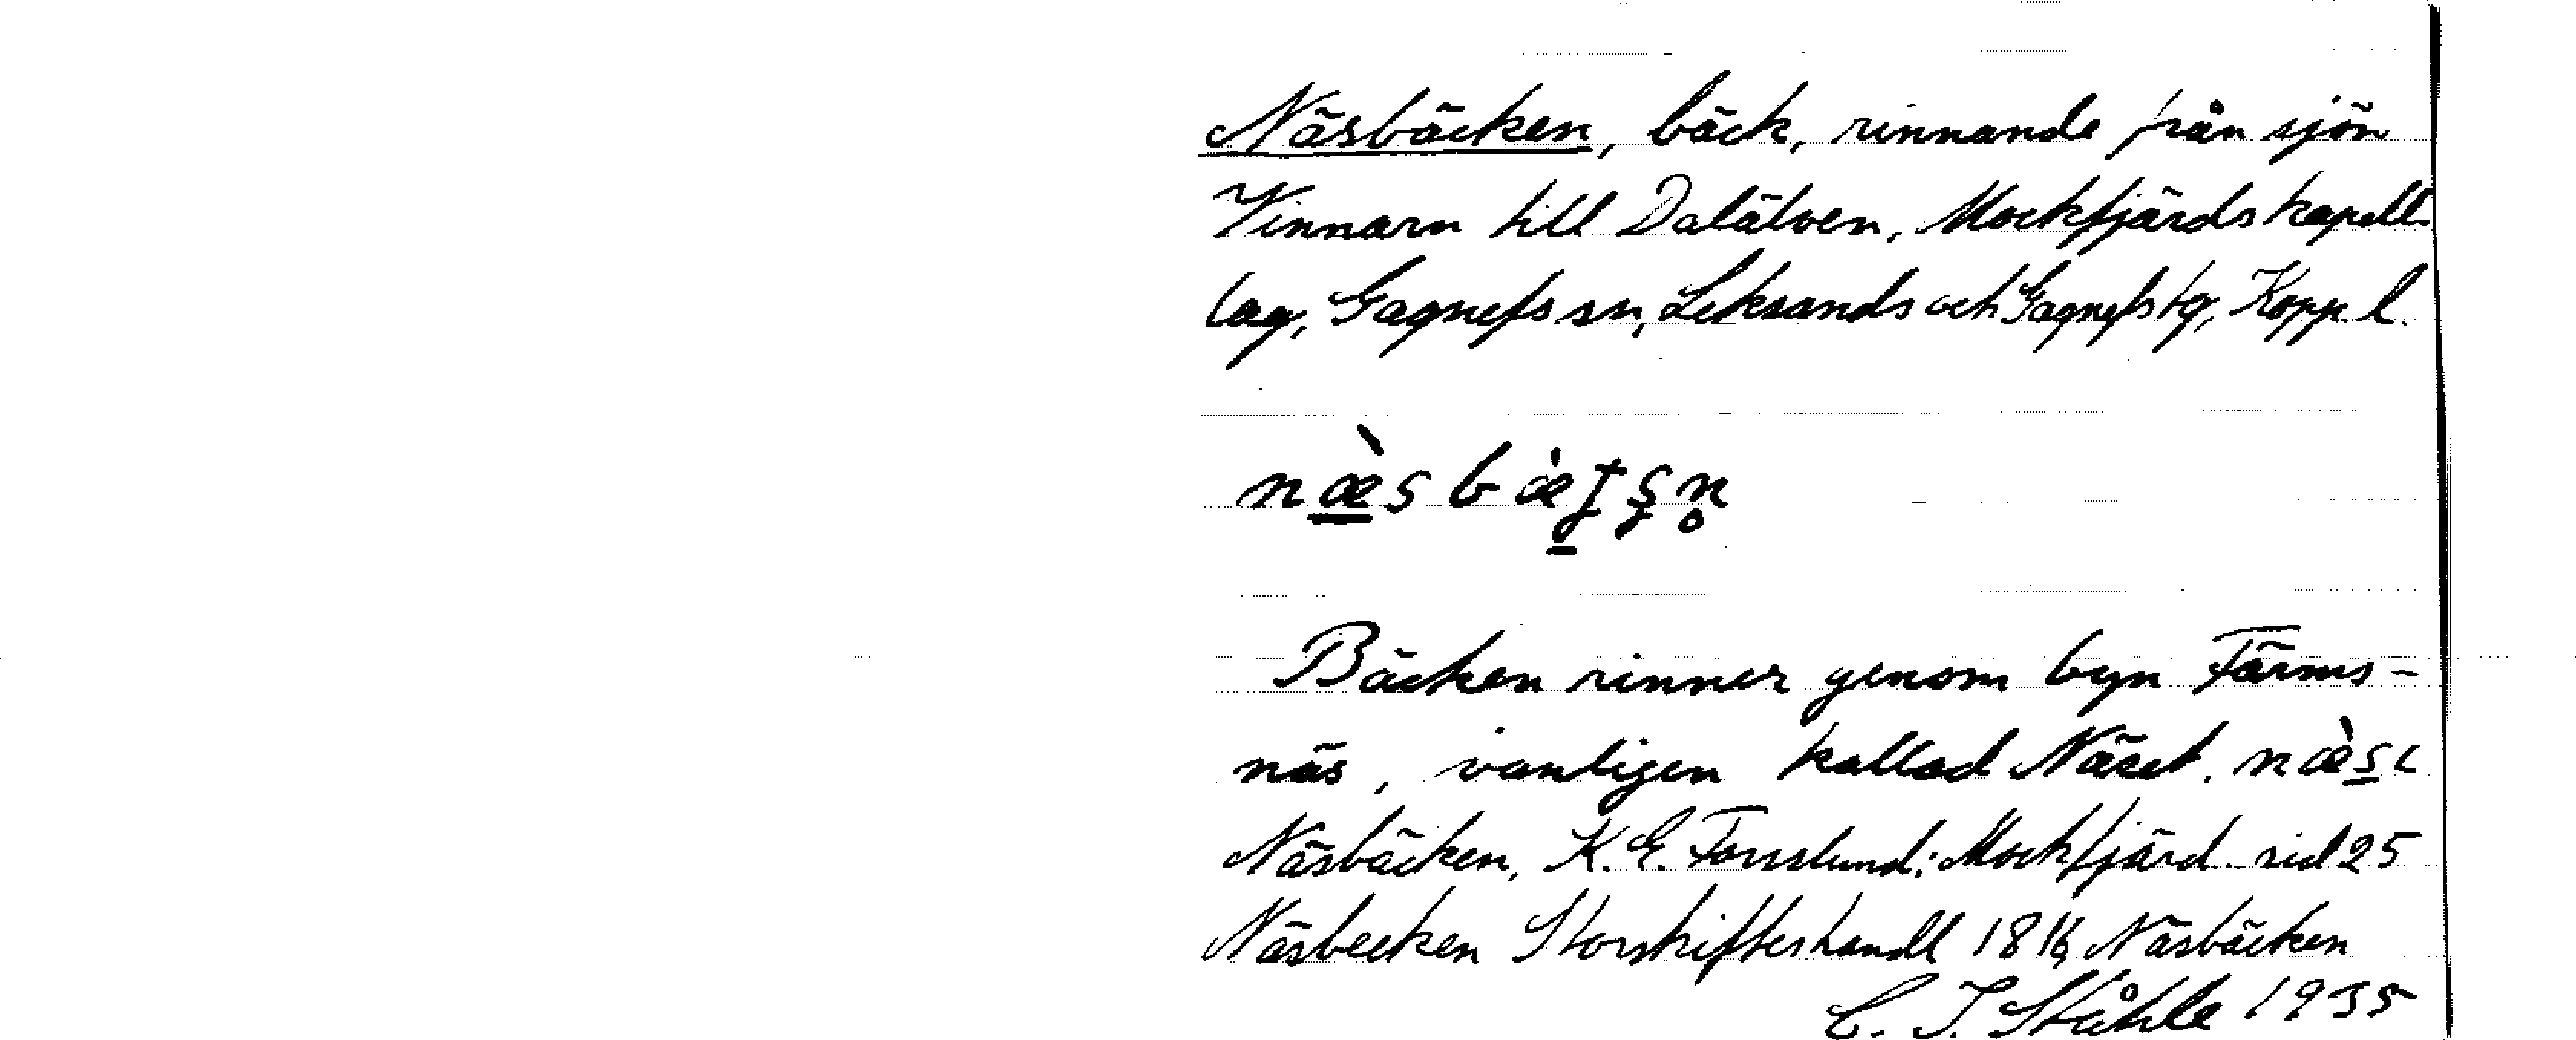 Näsbäcken, bäck, rinnande från sjön
Vinnarn till Dalälven, Mockfjärds kapell-
lag, Gagnefs sn, Leksands och Gagnefs tg, Kopp. l.
næ̀sbæ̀
Bäcken rinner genom byn Färms-
näs, vanligen kallad Näset. næ̀sɩ
Näsbäcken, K. E. Forsslund: Mockfjärd sid 25
Näsbecken Storskifteshandl 1816, Näsbäcken
C. I. Ståhle 1935